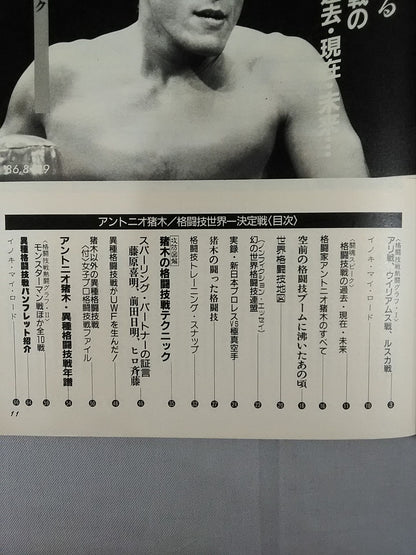 る
戦の
過去・現在・未来…
ク
'86.8
9
アントニオ猪木/格闘技世界一決定戦〈目次〉
〈格闘技戦熱闘グラフ・I〉
アリ戦、ウイリアムス戦、ルスカ戦
イノキ・マイ・ロード
〈闘魂スピーク〉
格闘技戦の過去・現在・未来
格闘家アントニオ猪木のすべて
空前の格闘技ブームに沸いたあの頃
世界格闘技地図
〈ノンフィクション・エッセイ〉
幻の世界格闘技連盟
実録・新日本プロレスVS極真空手
猪木の闘った格闘技
格闘技トレーニング・スナップ
〈攻防図解〉
猪木の格闘技戦テクニック
スパーリング・パートナーの証言
藤原喜明、前田日明、ヒロ斉藤
異種格闘技戦がUWFを生んだ!
猪木以外の異種格闘技戦
〈付〉女子プロ格闘技戦ファイル
アントニオ猪木・異種格闘技戦年譜
〈格闘技戦熱闘グラフ・II〉
モンスターマン戦ほか全10戦
イノキ・マイ・ロード
異種格闘技戦パンフレット紹介
11